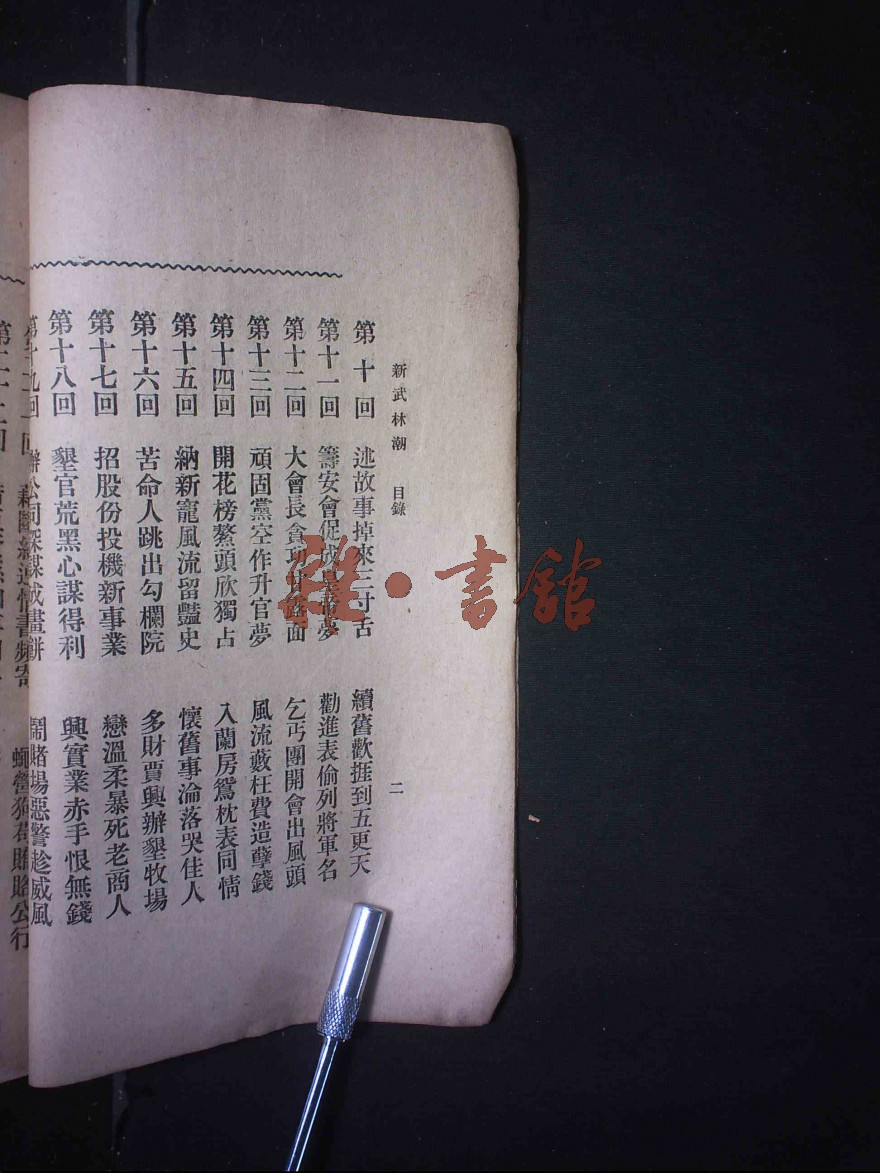 新武林潮 目錄 二
第十回 述故事掉來三寸舌 續舊歡捱到五更天
第十一回 籌安會促成皇帝夢 勸進表倫列將軍名
第十二回 大會長貪 面 乞丐團開會出風頭
第十三回 頑固黨空作升官夢 風流藪枉費造孽錢
第十四回 開花榜鰲頭欣獨占 入蘭房鴛枕表同情
第十五回 納新寵風流留豔史 懷舊事淪落哭佳人
第十六回 苦命人跳出勾欄院 多財賈興辦墾牧場
第十七回 招股份投機新事業 戀溫柔暴死老商人
第十八回 墾官荒黑心謀得利 興實業赤手恨無錢
第十九回 辦公司深謀成畫餅 鬧賭場惡警趁威風
情書頻寄 蠅營狗苟賄賂公行
雜·書館